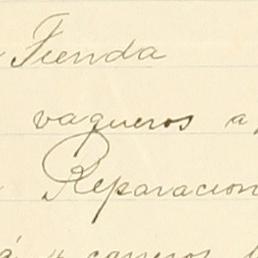 Tienda
vaqueros a
Reparacion
á 4 carreros